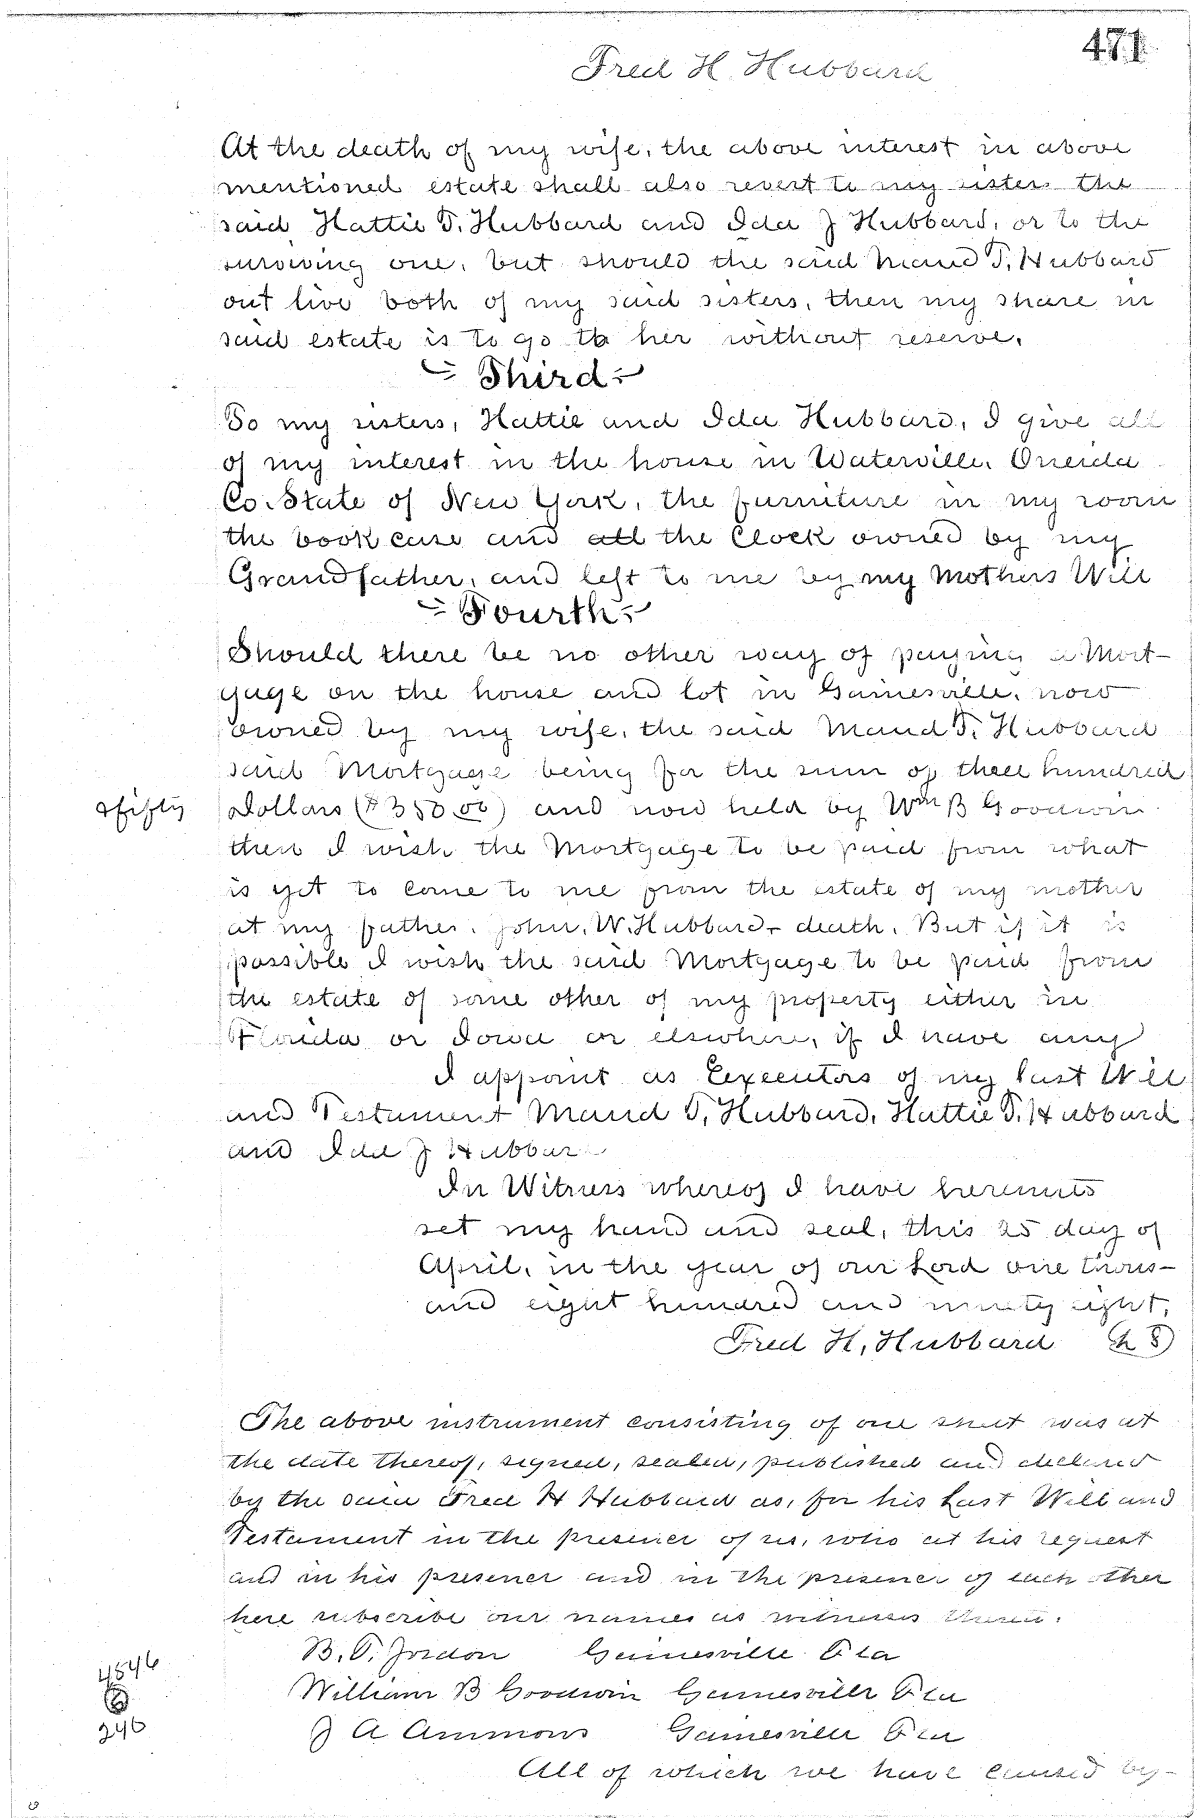 471
Fred H. Hubbard
At the death of my wife, the above interest in above
mentioned estate shall also revert to my sisters the
said Hattie T. Hubbard and Ida J Hubbard, or to the
surviving one, but should the said Maud T. Hubbard
out live both of my said sisters, then my share in
said estate is to go to her without reserve.
Third
To my sisters, Hattie and Ida Hubbard, I give all
of my interest in the house in Waterville, Oneida
Co. State of New York, the furniture in my room
the book case and all the Clock owned by my
Grandfather, and left to me by my Mothers Will
Fourth
Should there be no other way of paying a Mort-
gage on the house and lot in Gainesville, now
owned by my wife, the said Maud T. Hubbard
said Mortgage being for the sum of three hundred
& fifty Dollars ($350.00) and now held by Wm B Goodwin
then I wish the Mortgage to be paid from what
is yet to come to me from the estate of my mother
at my father, John, W. Hubbard- death. But if it is
possible I wish the said Mortgage to be paid from
the estate of some other of my property either in
Florida or Iowa or elsewhere, if I have any
I appoint as Executors of my last Will
and Testament Maud T. Hubbard, Hattie T. Hubbard
and Ida J Hubbar
In Witness whereof I have hereunto
set my hand and seal, this 25 day of
April, in the year of our Lord one thous-
and eight hundred and ninety eight,
Fred H, Hubbard (L S)
The above instrument consisting of one sheet was at
the date thereof, signed, sealed, published and declared
by the said Fred H Hubbard as, for his Last Will and
Testament in the presence of us, who at his request
and in his presence and in the presence of each other
here subscribe our names as witnesses thereto.
B. T. Jordon Gainesville Fla
William B Goodwin Gainesville Fla
4546
6
246
J A Ammons Gainesville Fla
All of which we have caused by-